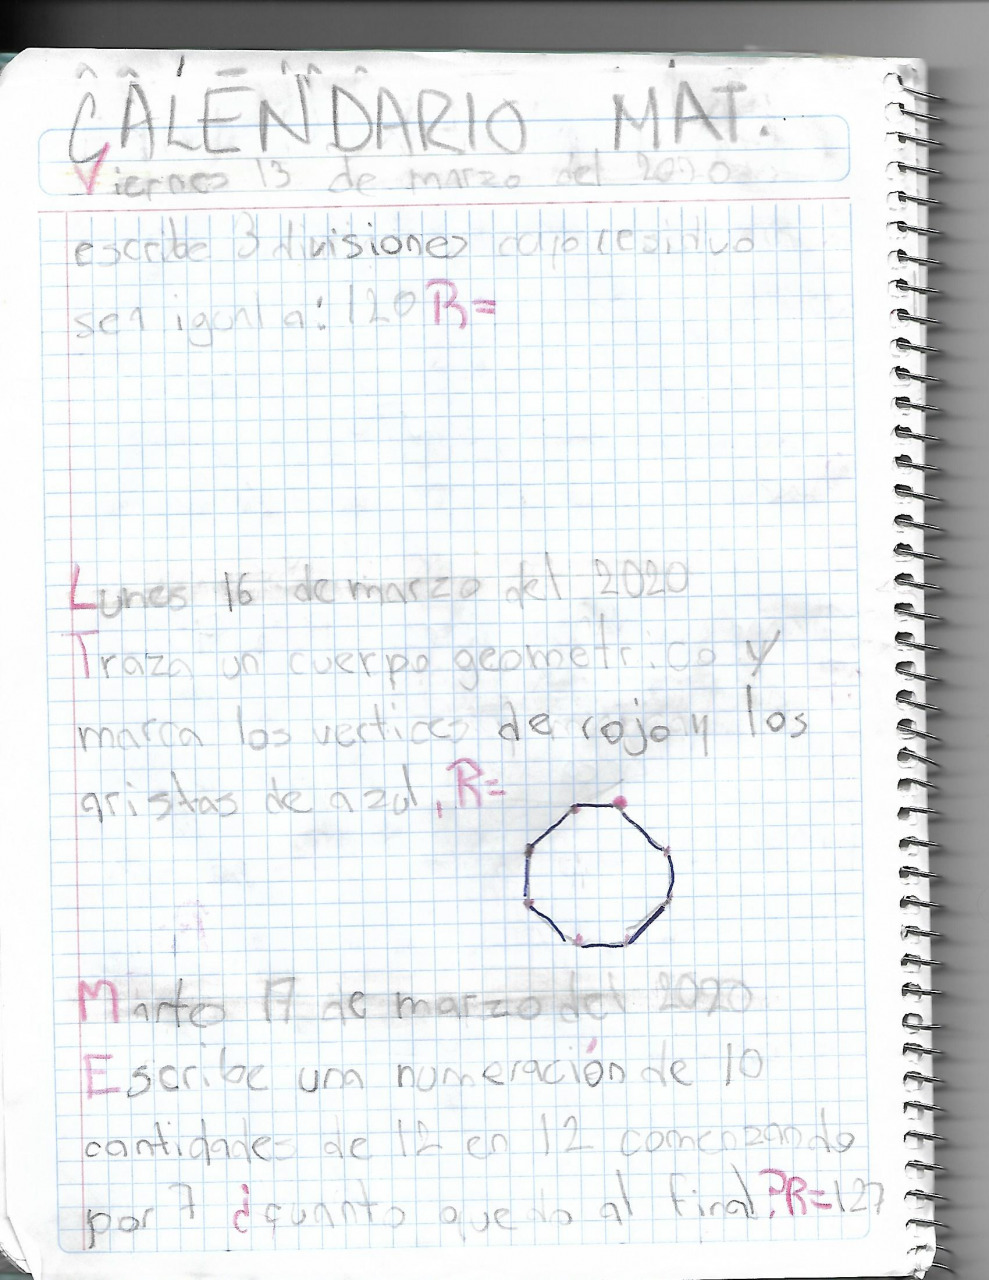 CALENDARIO MAT.
Viernes 13 de marzo del 2020
escribe 3 divisiones cuyo residuo
sea igual a: 120 R=
Lunes 16 de marzo del 2020
Traza un cuerpo geometrico y
marca los vertices de rojo y los
aristas de azul, R=
Martes 17 de marzo del 2020
Escribe una numeración de 10
cantidades de 12 en 12 comenzando
por 7 ¿cuanto quedo al final? R=127